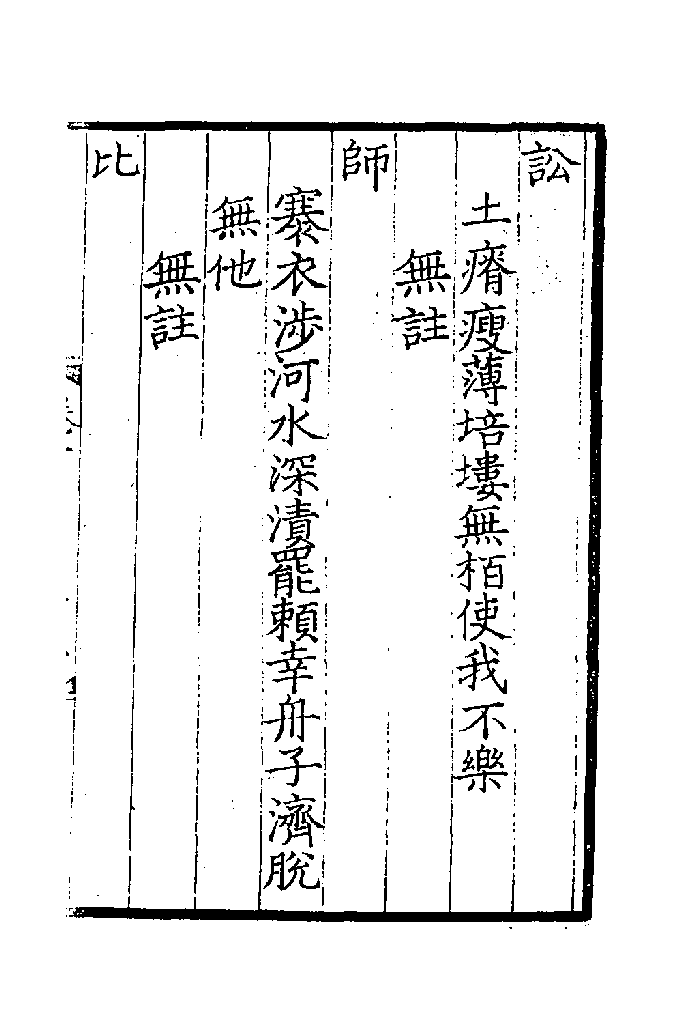 訟
土瘠瘦薄培塿無栢使我不樂
無註
師
褰衣涉河水深漬罷賴幸舟子濟脫
無他
無註
比